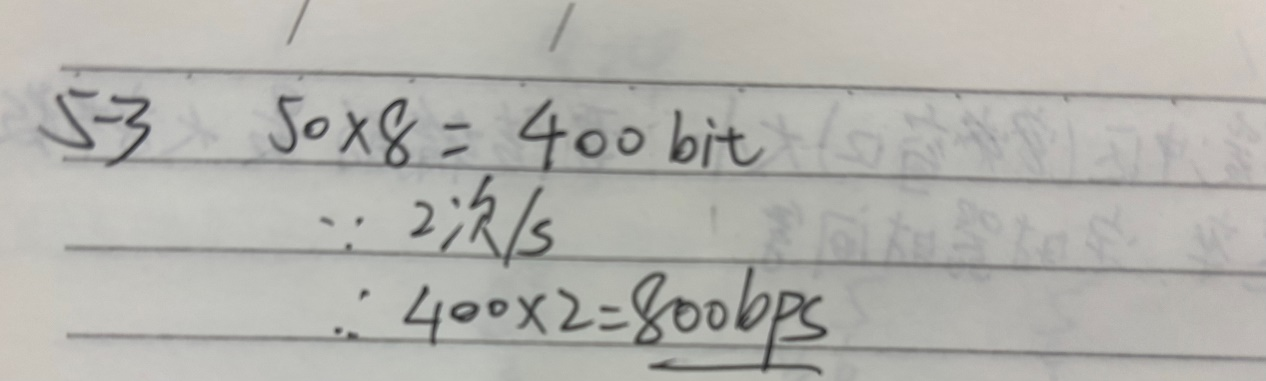 5-3 50×8 = 400 bit
∵ 2次/s
∴ 400×2=800bps